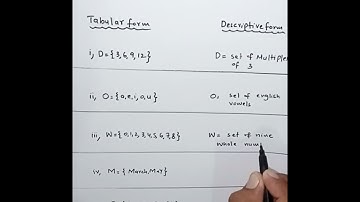 Tabular form
Descriptive form
i, D = {3,6,9,12}
D = set of Multiples
of 3
ii, O = {a,e,i,o,u}
O, set of english
vowels
iii, W = {0,1,2,3,4,5,6,7,8}
W = set of nine
whole num
iv, M = {March, May}